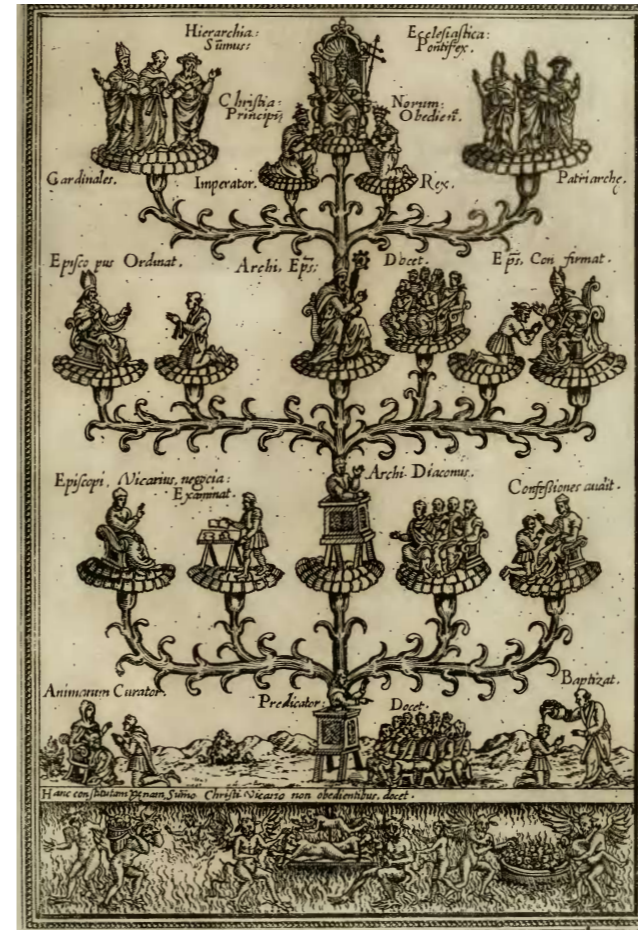 Hierarchia: Ecclesiastica:
Sũmus: Pontifex.
Christia: Norum:
Principũ Obedien̄.
Cardinales. Imperator. Rex. Patriarche.
Episco pus Ordinat. Archi, Ep̄s: Docet. Ep̄s, Con firmat.
Episcopi, Vicarius, negocia: Archi Diaconus.
Examinat. Confessiones audit.
Animarum Curator. Predicator: Docet. Baptizat.
Hanc constitutam penam Sum̃o Christi Vicario non obedientibus, docet.